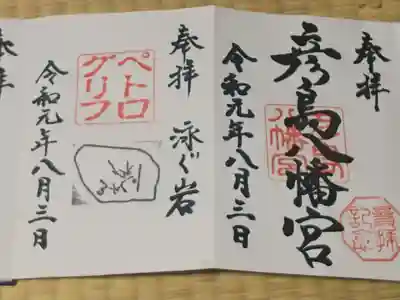 奉拝
彦島八幡宮
八幡宮
参拝
記念
令和元年八月三日
奉拝
泳ぐ岩
ペトロ
グリフ
令和元年八月三日
奉拝